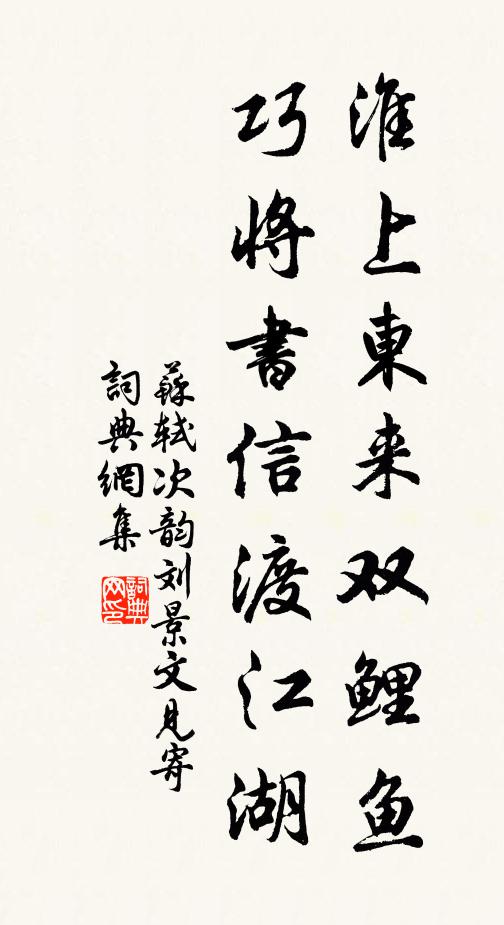 淮上東来双鲤鱼
巧将書信渡江湖
蘇轼次韵刘景文見寄
詞典網集
詞典網印